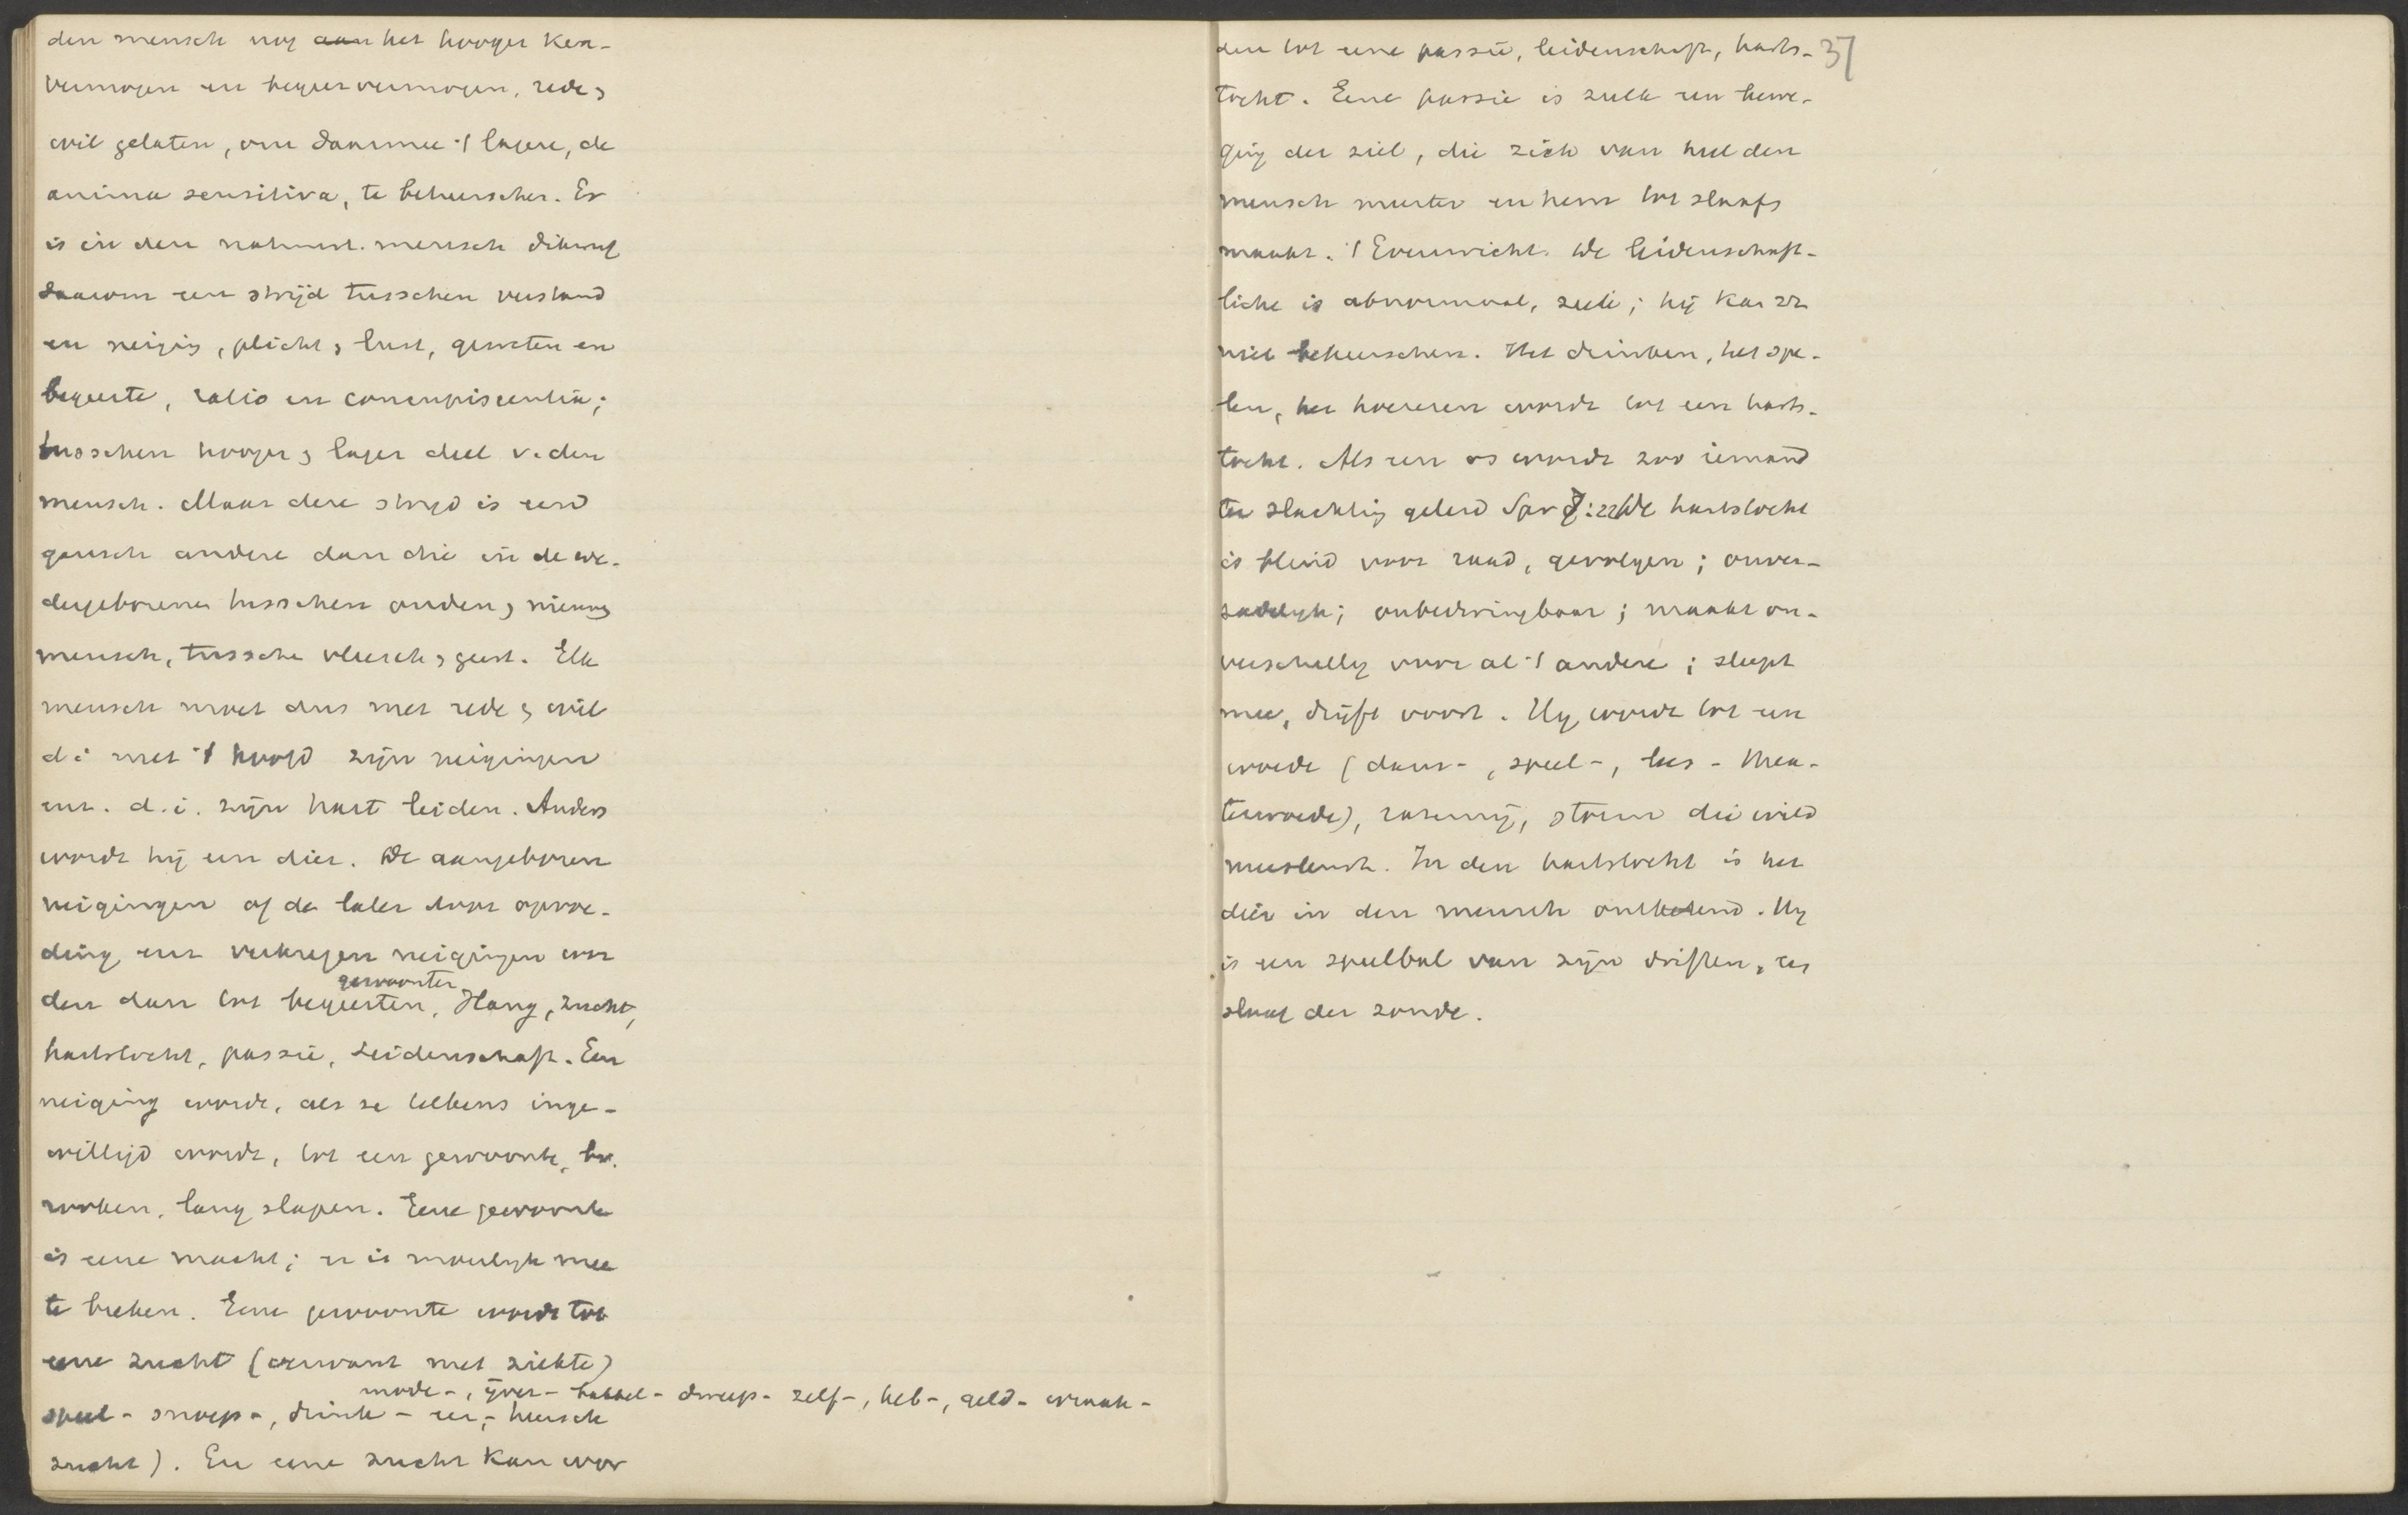 den mensch nog aan het hooger ken-
vermogen en begeervermogen, rede &
wil gelaten, om daarmee 't lagere, de
anima sensitiva, te beheerschen. Er
is in den natuurl. mensch dikwijls
daarom een strijd tusschen verstand
en neiging, plicht & lust, geweten en
begeerte, ratio en concupiscentia;
tusschen hooger & lager deel v. den
mensch. Maar deze strijd is eene
gansch andere dan die in de we-
dergeborenen tusschen ouden & nieuwen
mensch, tussche vleesch & geest. Elk
mensch moet dus met rede & wil
d i met 't hoofd zijn neigingen
enz. d.i. zijn hart leiden. Anders
wordt hij een dier. De aangeboren
neigingen of de later door opvoe-
ding enz verkregen neigingen wor
gewoonten
den dan tot begeerten, Hang, zucht,
hartstocht, passie, Leidenschaft. Een
neiging wordt, als ze telkens inge-
willigd wordt, tot een gewoonte, bv.
rooken, lang slapen. Eene gewoonte
is eene macht; er is moeilijk mee
te breken. Eene gewoonte wordt tot
eene zucht (verwant met ziekte)
mode-, ijver- babbel- dweep- zelf-, heb-, geld- wraak-
speel- snoep-, drink- eer,- heersch
zucht). En eene zucht kan wor
37
den tot eene passie, leidenschaft, harts-
tocht. Eene passie is zulk een bewe-
ging der ziel, die zich van heel den
mensch meester en hem tot slaafs
maakt. 't Evenwicht. De leidenschaft-
liche is abnormaal, ziek; hij kan zz
niet beheerschen. Het drinken, het spe-
len, het hoereren wordt tot een harts-
tocht. Als een os wordt zoo iemand
ter slachting geleid Spr 7:22 De hartstocht
is blind voor raad, gevolgen; onver-
zadelijk; onbedwingbaar; maakt on-
verschillig voor al 't andere; sleept
mee, drijft voort. Hij wordt tot een
woede (dans-, speel-, lees- thea-
terwoede), razernij, storm die wild
meesleurt. In den hartstocht is het
dier in den mensch ontketend. Hij
is een speelbal van zijn driften, een
slaaf der zonde.